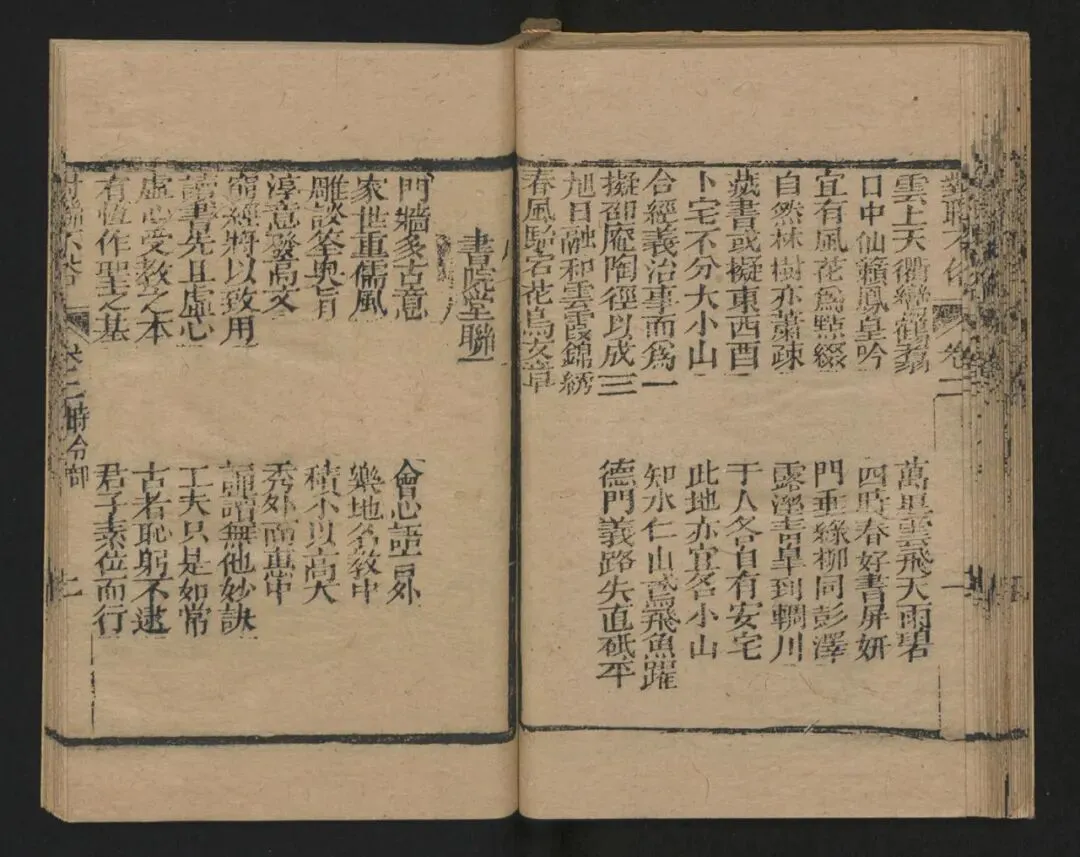 對聯不俗 卷二 一
雲上天衢戀鶴羣 萬里雲飛天雨碧
口中仙籟鳳皇吟 四時春好書屏妍
宜有風花爲點綴 門垂綠柳同彭澤
自然林樹亦蕭疎 露溼青皐到輞川
藏書或擬東西酉 于人各自有安宅
卜宅不分大小山 此地亦宜名小山
合經義治事而爲一 知水仁山鳶飛魚躍
擬邵庵陶徑以成三 德門義路失直砥平
旭日融和雲霞錦綉
春風駘宕花鳥文章
書院堂聯
門牆多古意 會心語言外
家世重儒風 樂地名教中
雕談筌奧旨 積小以高大
淳意發高文 秀外而惠中
窮經將以致用 誦讀無他妙訣
讀書先且虛心 工夫只是如常
虛心受教之本 古者恥躬不逮
有恆作聖之基 君子素位而行
對聯不俗 卷二 時令部